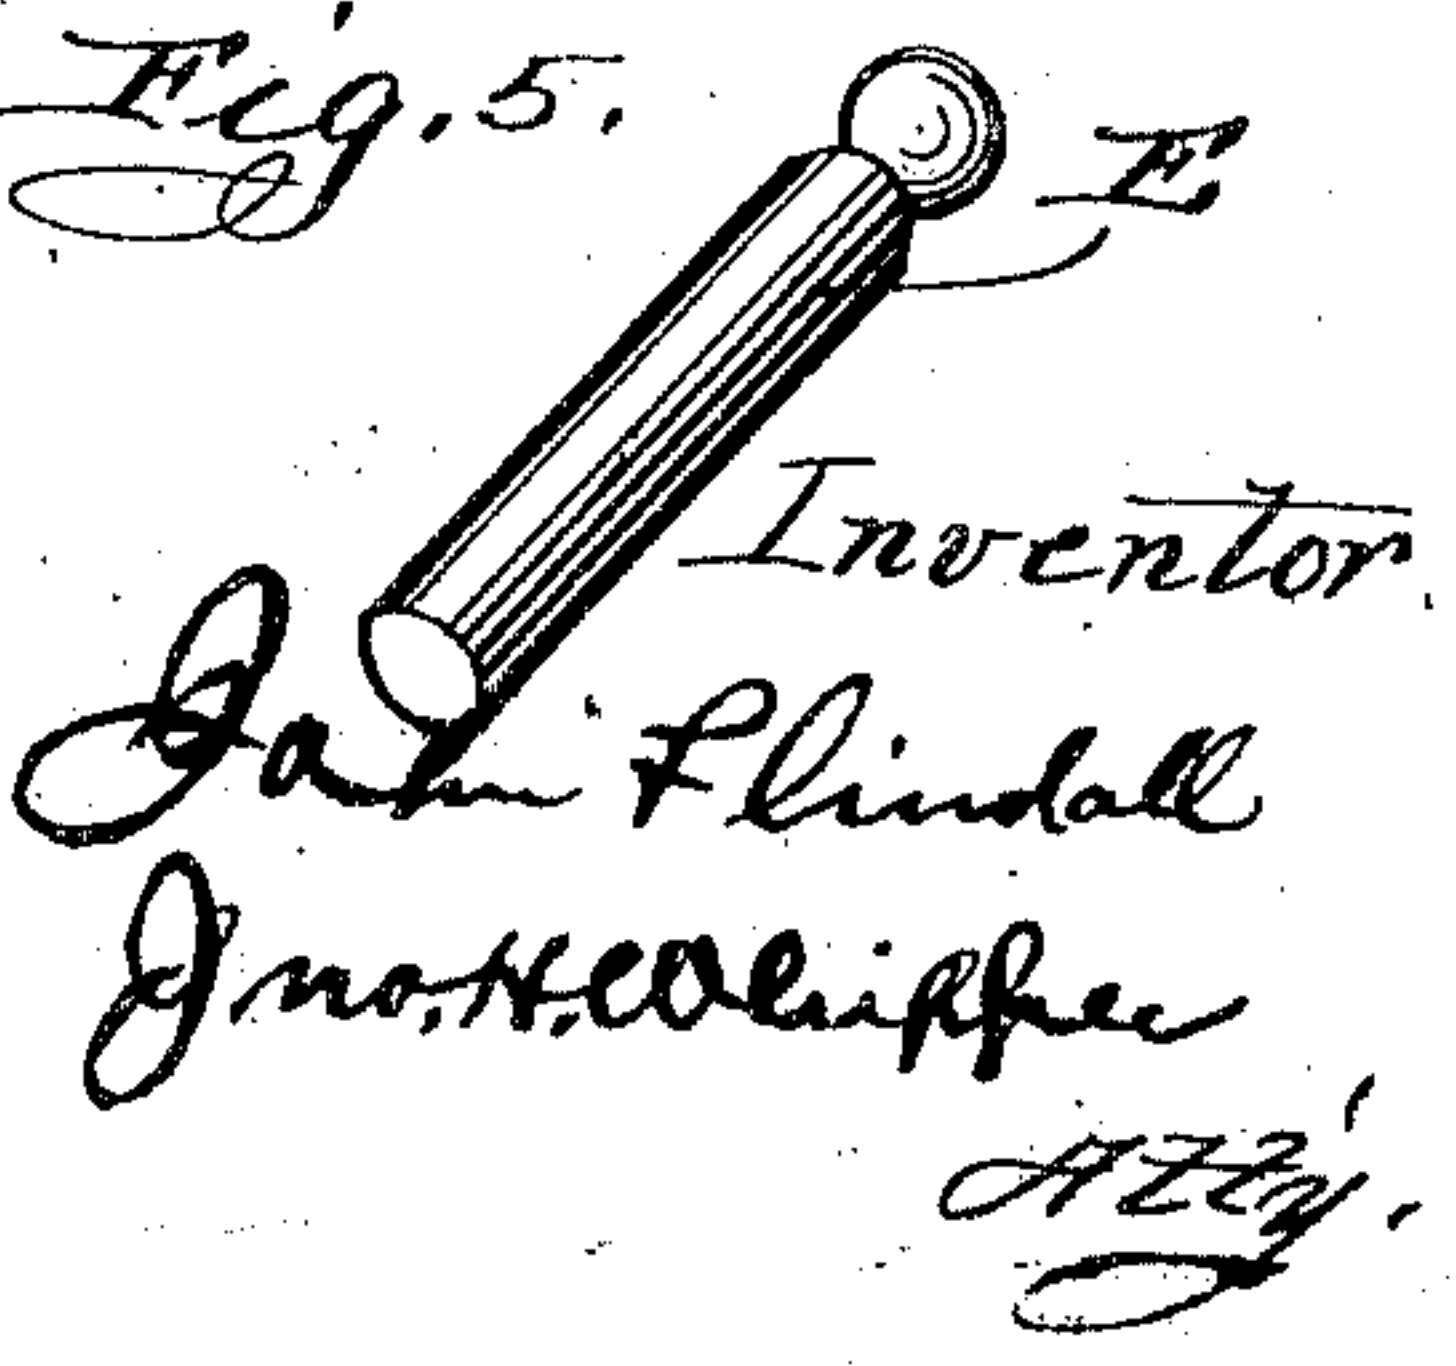 Fig. 5.
E
Inventor.
John Flindall
Jno. H. Whipple
Att'y.